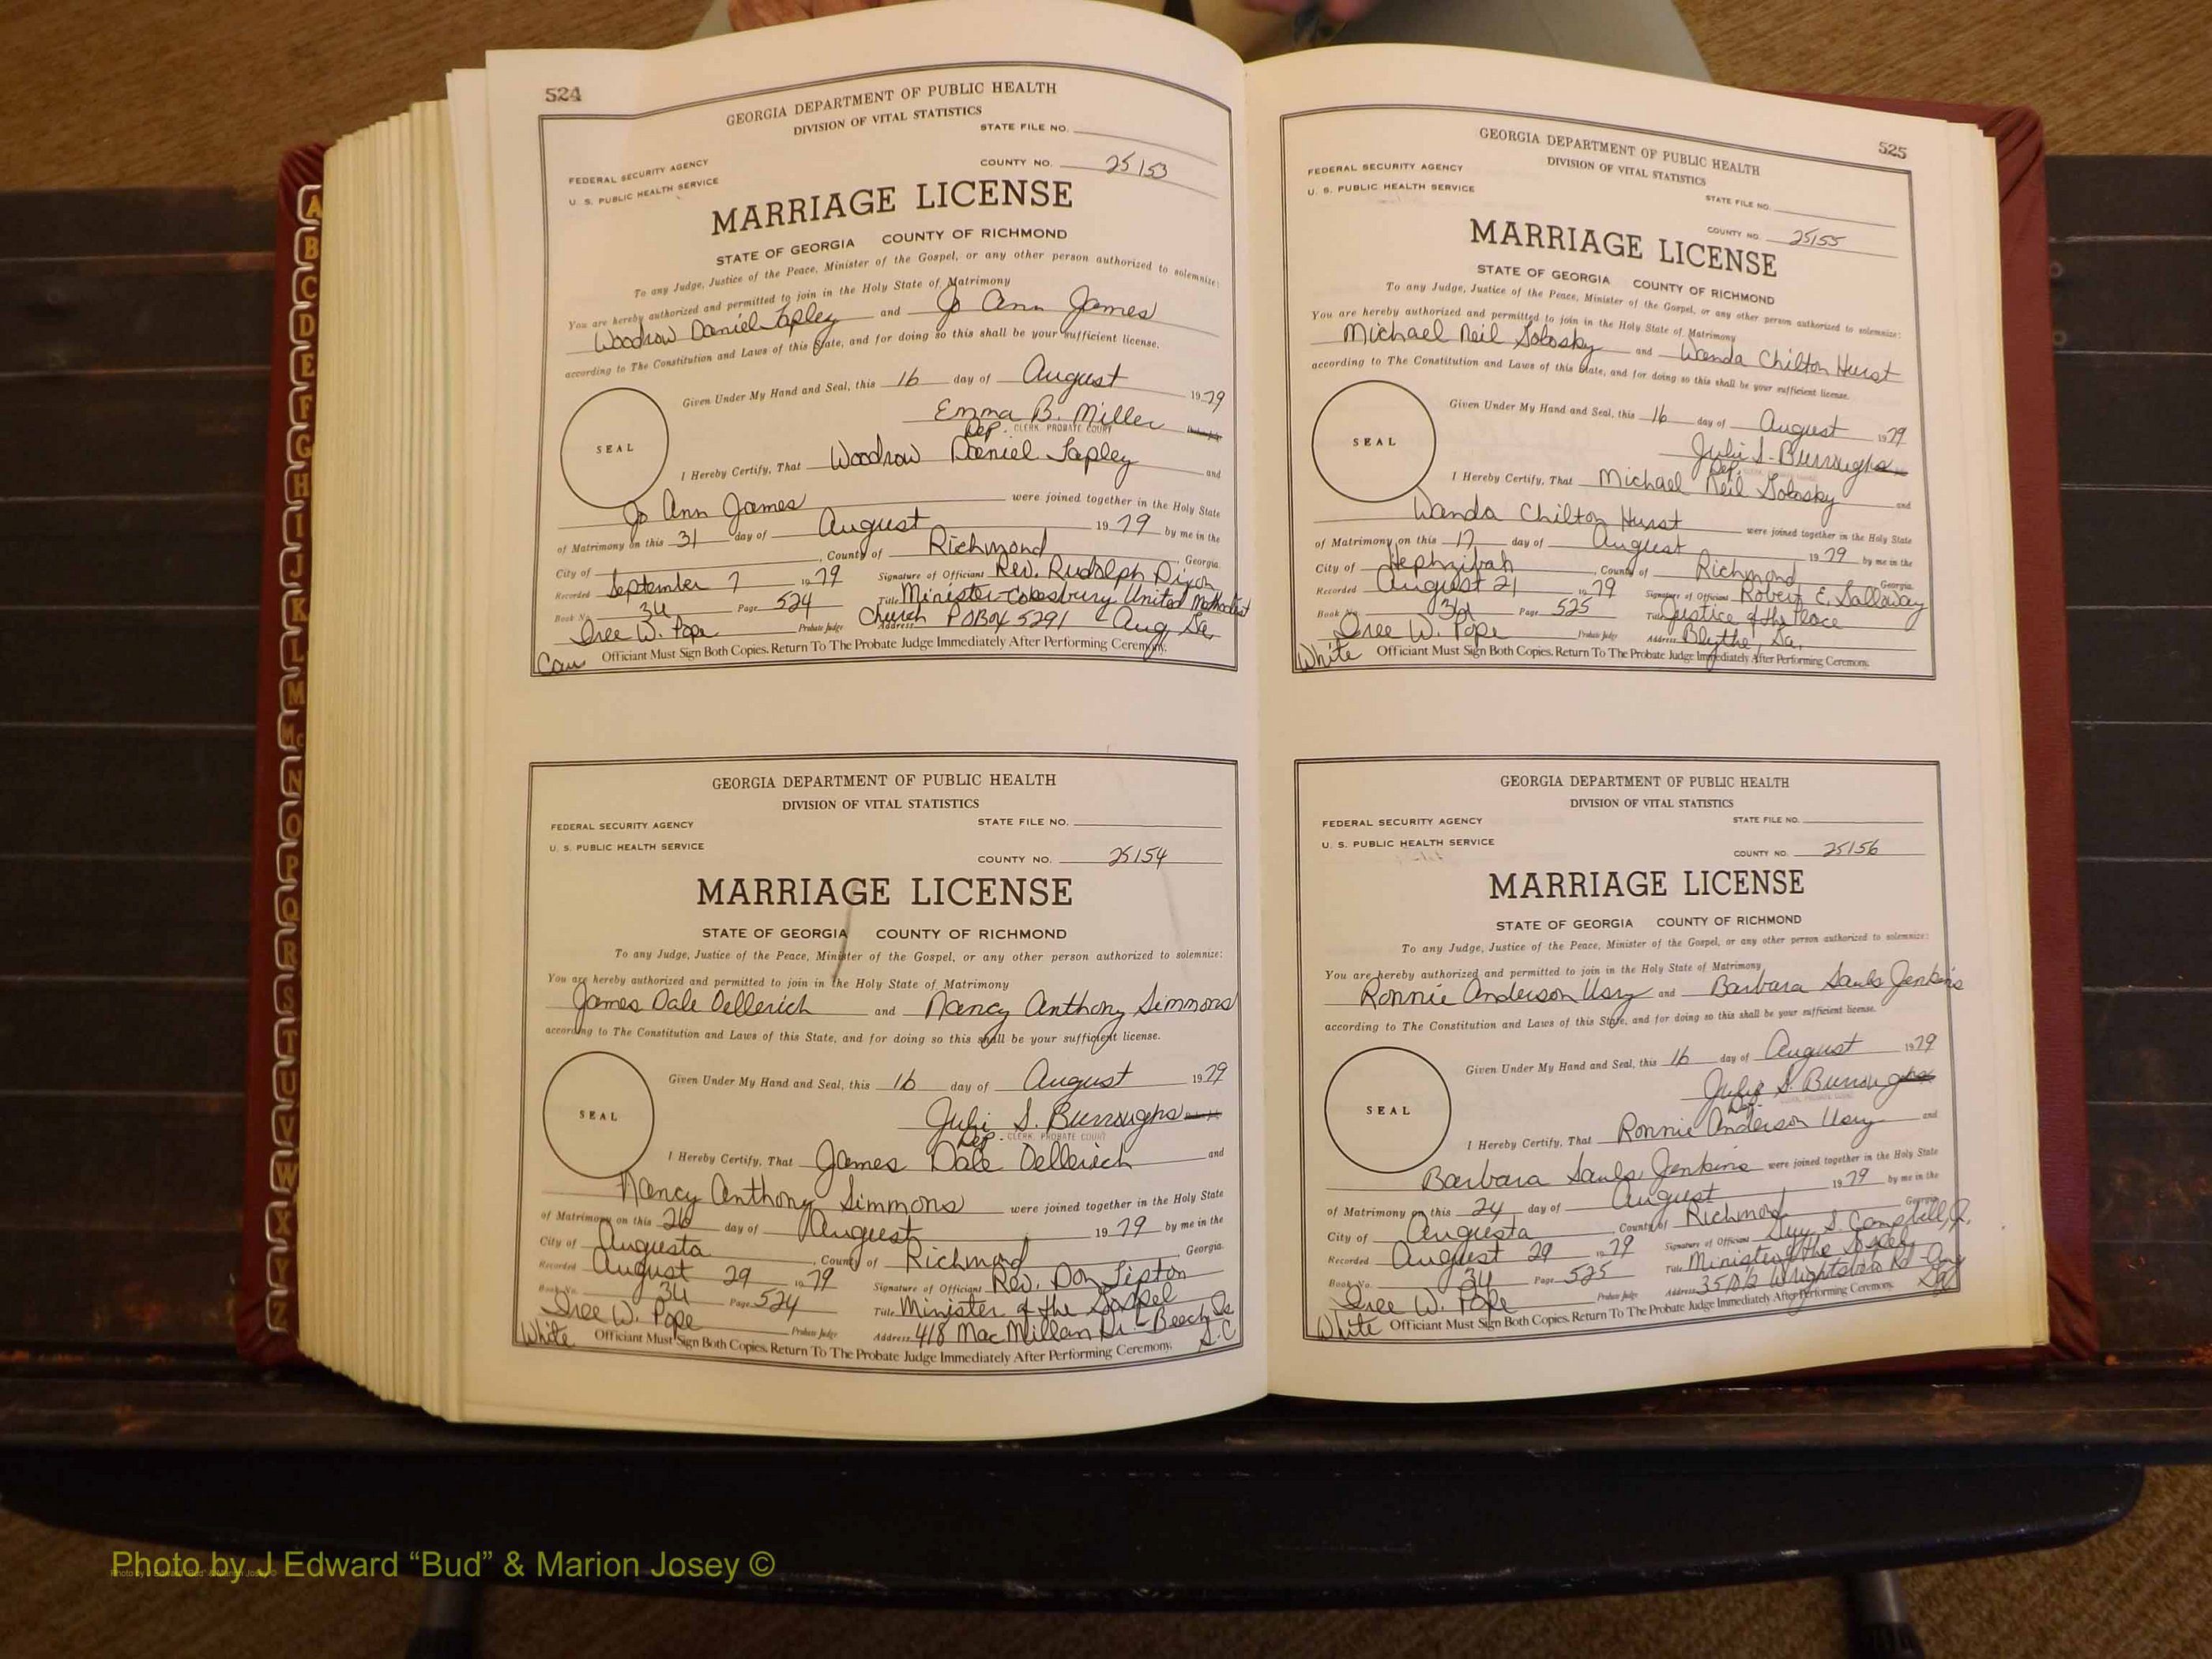 A
B
C
D
E
F
G
H
I
J
K
L
M
Mc
N
O
P
Q
R
S
T
U
V
W
X
Y
Z
524
GEORGIA DEPARTMENT OF PUBLIC HEALTH
DIVISION OF VITAL STATISTICS
STATE FILE NO.
FEDERAL SECURITY AGENCY
COUNTY NO. 25153
U. S. PUBLIC HEALTH SERVICE
MARRIAGE LICENSE
STATE OF GEORGIA COUNTY OF RICHMOND
To any Judge, Justice of the Peace, Minister of the Gospel, or any other person authorized to solemnize:
You are hereby authorized and permitted to join in the Holy State of Matrimony
Woodrow Daniel Tapley and Jo Ann James
according to The Constitution and Laws of this State, and for doing so this shall be your sufficient license.
Given Under My Hand and Seal, this 16 day of August 1979
Emma B. Miller
Dep. CLERK, PROBATE COURT
SEAL
I Hereby Certify, That Woodrow Daniel Tapley and
Jo Ann James were joined together in the Holy State
of Matrimony on this 31 day of August 1979 by me in the
City of , County of Richmond , Georgia.
Recorded September 7 1979 Signature of Officiant Rev. Rudolph Dixon
Book No. 34 Page 524 Title Minister-Cokesbury United Methodist
Iree W. Pope Probate Judge Church Address POBox 5291 - Aug, Ga,
Cau Officiant Must Sign Both Copies. Return To The Probate Judge Immediately After Performing Ceremony.
GEORGIA DEPARTMENT OF PUBLIC HEALTH
DIVISION OF VITAL STATISTICS
FEDERAL SECURITY AGENCY STATE FILE NO.
U. S. PUBLIC HEALTH SERVICE
COUNTY NO. 25154
MARRIAGE LICENSE
STATE OF GEORGIA COUNTY OF RICHMOND
To any Judge, Justice of the Peace, Minister of the Gospel, or any other person authorized to solemnize:
You are hereby authorized and permitted to join in the Holy State of Matrimony
James Dale Oellerich and Nancy Anthony Simmons
according to The Constitution and Laws of this State, and for doing so this shall be your sufficient license.
Given Under My Hand and Seal, this 16 day of August 1979
Julie S. Burroughs
Dep. CLERK, PROBATE COURT
SEAL
I Hereby Certify, That James Dale Oellerich and
Nancy Anthony Simmons were joined together in the Holy State
of Matrimony on this 26 day of August 1979 by me in the
City of Augusta , County of Richmond , Georgia.
Recorded August 29 1979 Signature of Officiant Rev. Don Lipton
Book No. 34 Page 524 Title Minister of the Gospel
Iree W. Pope Probate Judge Address 418 MacMillan Dr - Beech Is
S.C
White Officiant Must Sign Both Copies. Return To The Probate Judge Immediately After Performing Ceremony.
525
GEORGIA DEPARTMENT OF PUBLIC HEALTH
DIVISION OF VITAL STATISTICS
FEDERAL SECURITY AGENCY
U. S. PUBLIC HEALTH SERVICE
STATE FILE NO.
COUNTY NO. 25155
MARRIAGE LICENSE
STATE OF GEORGIA COUNTY OF RICHMOND
To any Judge, Justice of the Peace, Minister of the Gospel, or any other person authorized to solemnize:
You are hereby authorized and permitted to join in the Holy State of Matrimony
Michael Neil Solosky and Wanda Chilton Hurst
according to The Constitution and Laws of this State, and for doing so this shall be your sufficient license.
Given Under My Hand and Seal, this 16 day of August 1979
Julie S. Burroughs
Dep.
SEAL
I Hereby Certify, That Michael Neil Solosky and
Wanda Chilton Hurst were joined together in the Holy State
of Matrimony on this 17 day of August 1979 by me in the
City of Hephzibah , County of Richmond , Georgia.
Recorded August 21 1979 Signature of Officiant Robert E. Galloway
Book No. 34 Page 525 Title Justice of the Peace
Iree W. Pope Probate Judge Address Blythe, Ga.
White Officiant Must Sign Both Copies. Return To The Probate Judge Immediately After Performing Ceremony.
GEORGIA DEPARTMENT OF PUBLIC HEALTH
DIVISION OF VITAL STATISTICS
FEDERAL SECURITY AGENCY STATE FILE NO.
U. S. PUBLIC HEALTH SERVICE
COUNTY NO. 25156
MARRIAGE LICENSE
STATE OF GEORGIA COUNTY OF RICHMOND
To any Judge, Justice of the Peace, Minister of the Gospel, or any other person authorized to solemnize:
You are hereby authorized and permitted to join in the Holy State of Matrimony
Ronnie Anderson Usry and Barbara Sauls Jenkins
according to The Constitution and Laws of this State, and for doing so this shall be your sufficient license.
Given Under My Hand and Seal, this 16 day of August 1979
Julie S. Burroughs
Dep. CLERK, PROBATE COURT
SEAL
I Hereby Certify, That Ronnie Anderson Usry and
Barbara Sauls Jenkins were joined together in the Holy State
of Matrimony on this 24 day of August 1979 by me in the
City of Augusta , County of Richmond Georgia.
Recorded August 29 1979 Signature of Officiant Guy S. Campbell, Jr.
Book No. 34 Page 525 Title Minister of the Gospel
Iree W. Pope Probate Judge Address 3510½ Wrightsboro Rd - Aug
Ga
White Officiant Must Sign Both Copies. Return To The Probate Judge Immediately After Performing Ceremony.
Photo by J Edward “Bud” & Marion Josey ©
Photo by J Edward "Bud" & Marion Josey ©